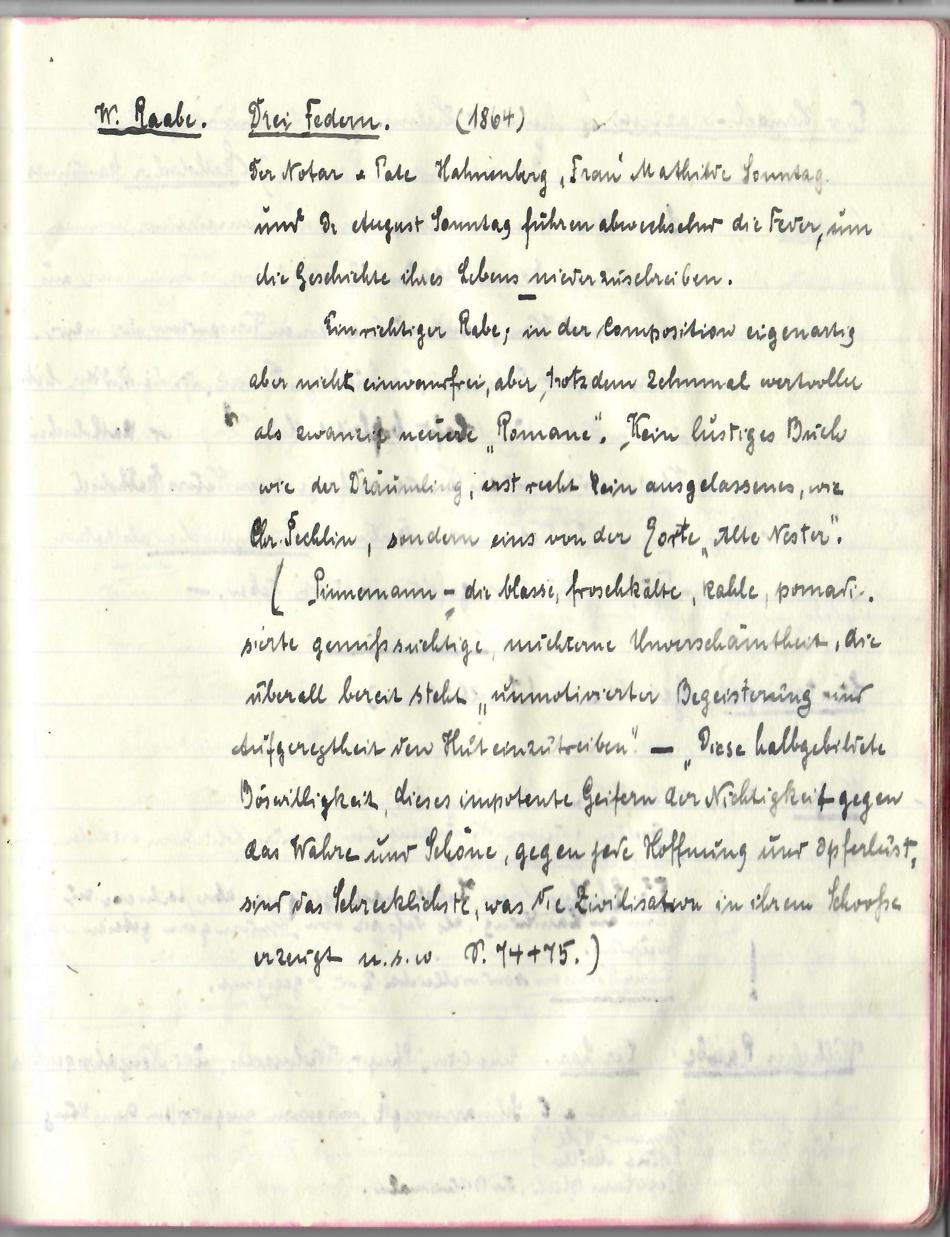 W. Raabe. Drei Federn. (1864)
Der Notar & Pate Hahnenberg, Frau Mathilde Sonntag
und Dr August Sonntag führen abwechselnd die Feder, um
die Geschichte ihres Lebens niederzuschreiben.
Ein richtiger Rabe; in der Composition eigenartig
aber nicht einwandfrei, aber trotzdem zehnmal wertvoller
als zwanzig neuere „Romane". Kein lustiges Buch
wie der Dräumling, erst recht kein ausgelassenes, wie
Chr. Pechlin, sondern eins von der Sorte „Alte Nester".
( Pinnemann – die blasse, froschkälte, kahle, pomadi-
sierte genußsüchtige, nüchterne Unverschämtheit, die
überall bereit steht „unmotivierter Begeisterung und
Aufgeregtheit den Hut einzutreiben" — „Diese halbgebildete
Böswilligkeit, dieses impotente Geifern der Nichtigkeit gegen
das Wahre und Schöne, gegen jede Hoffnung und Opferlust,
sind das Schrecklichste, was die Zivilisation in ihrem Schooße
erzeugt u.s.w S. 74+75.)